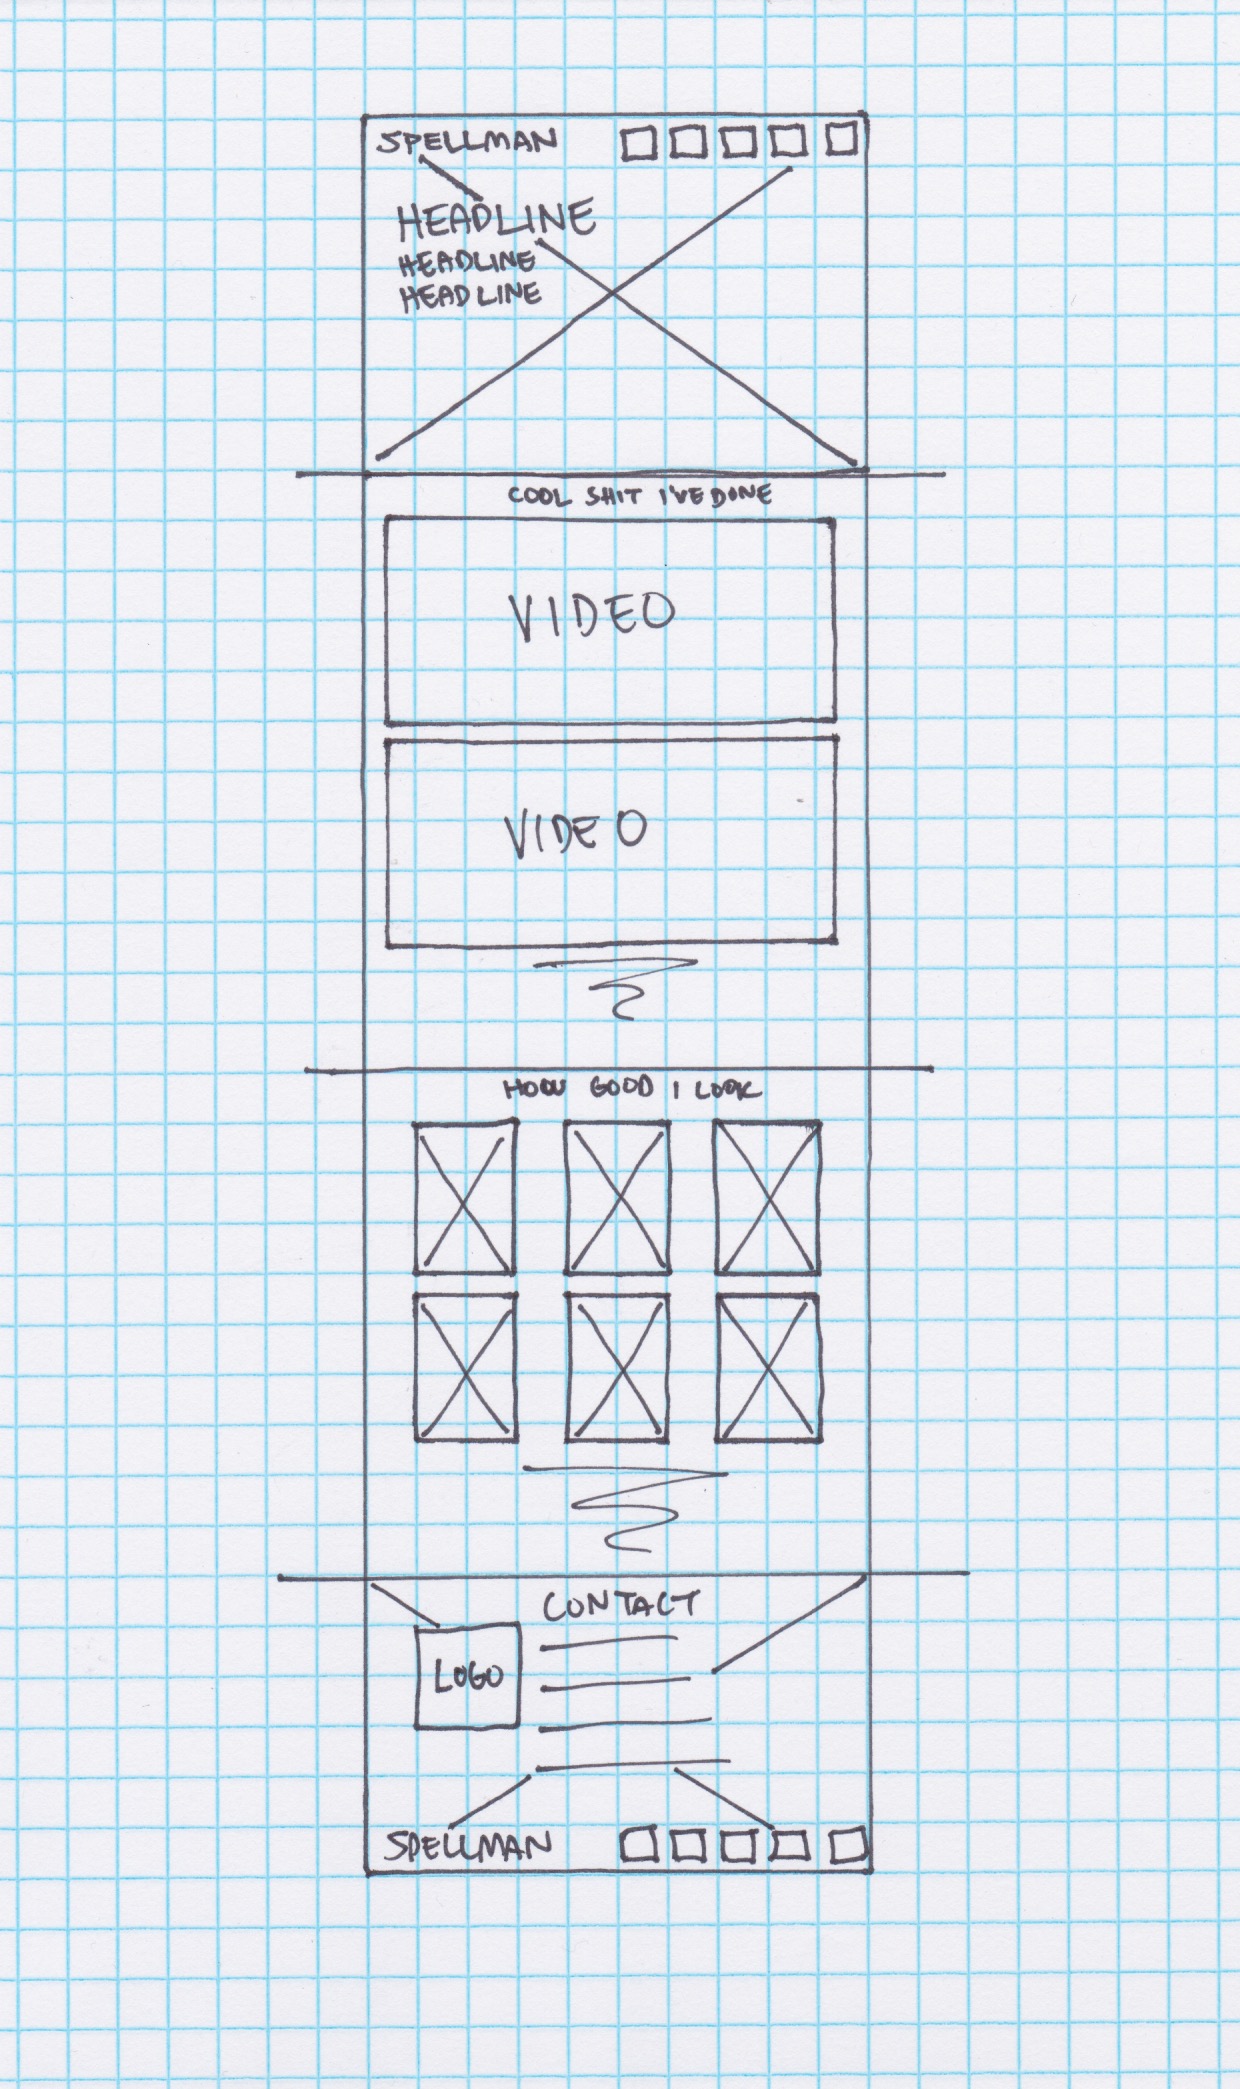 SPELLMAN
HEADLINE
HEADLINE
HEADLINE
COOL SHIT I'VE DONE
VIDEO
VIDEO
HOW GOOD I LOOK
CONTACT
LOGO
SPELLMAN